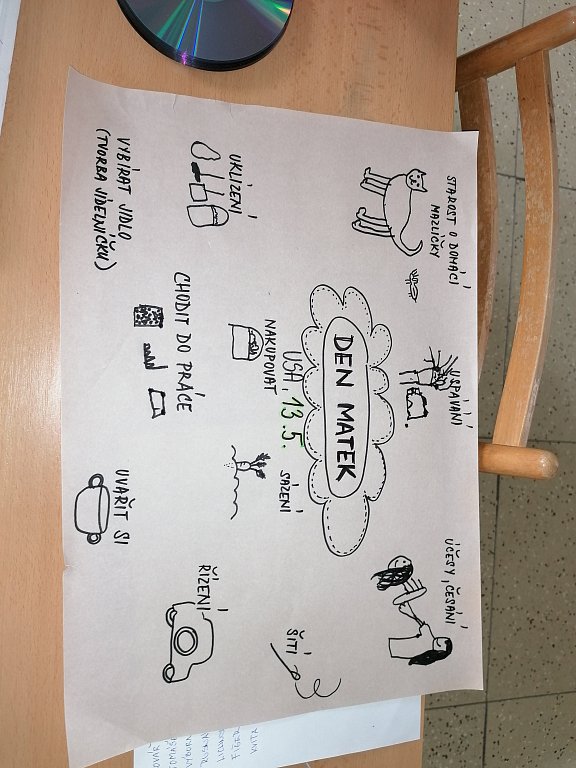 STAROST O DOMÁCÍ
MAZLÍČKY
USPÁVÁNÍ
ÚČESY, ČESÁNÍ
DEN MATEK
USA 13.5.
NAKUPOVAT
SÁZENÍ
ŠITÍ
UKLÍZENÍ
CHODIT DO PRÁCE
ŘÍZENÍ
VYBÍRAT JÍDLO
(TVORBA JÍDELNÍČKU)
UVAŘIT SI